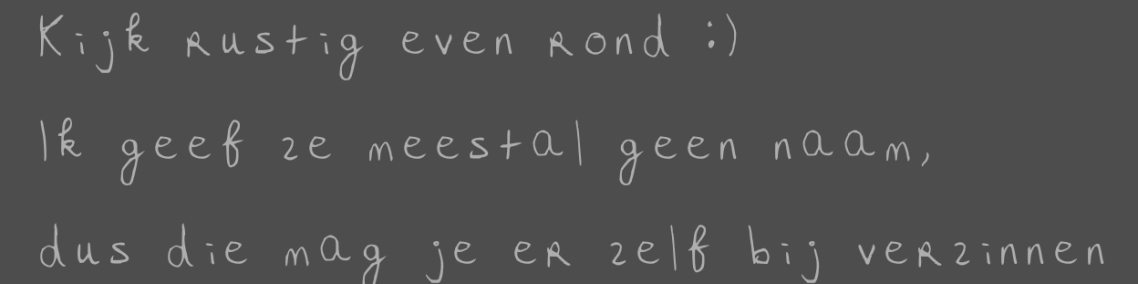 Kijk rustig even rond :)
Ik geef ze meestal geen naam,
dus die mag je er zelf bij verzinnen